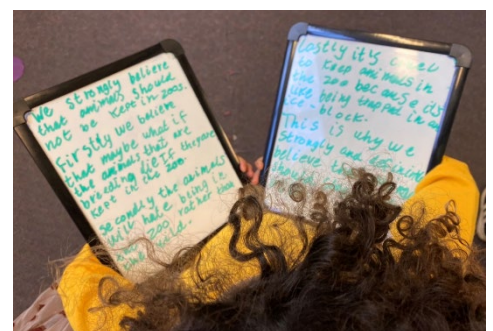 We strongly believe
that animals should
not be kept in zoos.
Firstly we believe
that maybe what if
the animals that are
breeding die if they are
kept in the zoo.
Secondly the animals
will hate being in
zoo rather than
Lastly it's
to keep animals in
the zoo because it's
like being trapped in
ice-block.
This is why we
strongly and
believe
should